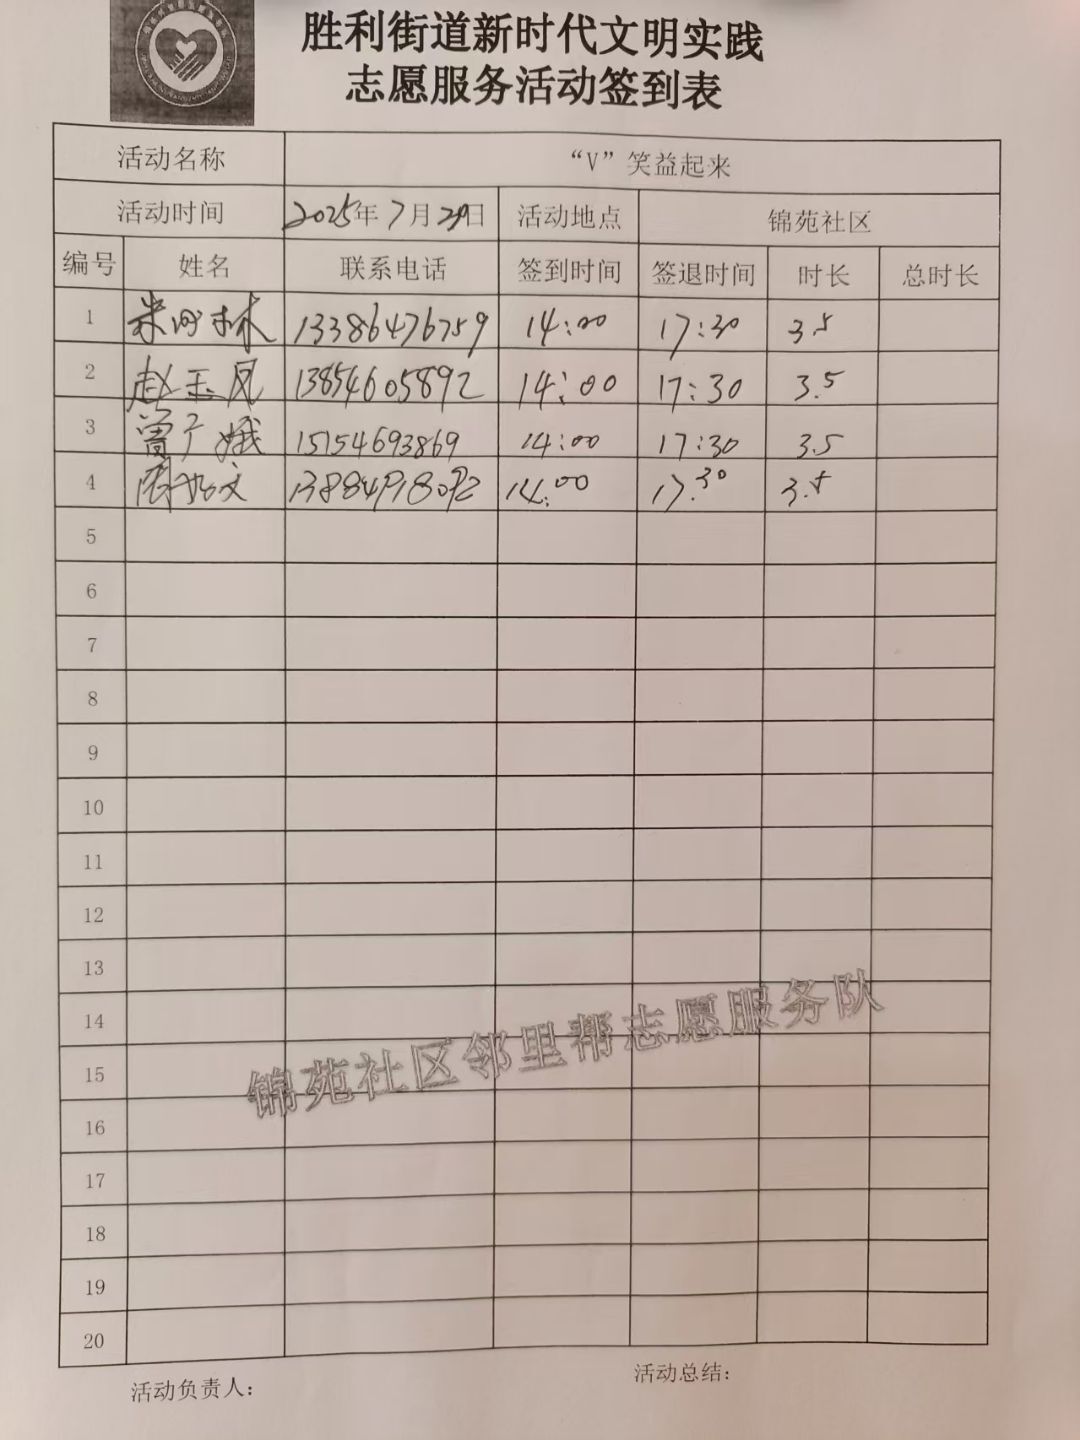 胜利街道新时代文明实践
志愿服务活动签到表
活动名称 “V”笑益起来
活动时间 2025年7月29日 活动地点 锦苑社区
编号 姓名 联系电话 签到时间 签退时间 时长 总时长
1 13386476759 14:00 17:30 3.5
2 赵玉凤 13854605892 14:00 17:30 3.5
3 曾广娥 15154693869 14:00 17:30 3.5
4 14:00 17:30 3.5
5
6
7
8
9
10
11
12
13
14
15
16
17
18
19
20
锦苑社区邻里帮志愿服务队
活动负责人： 活动总结：